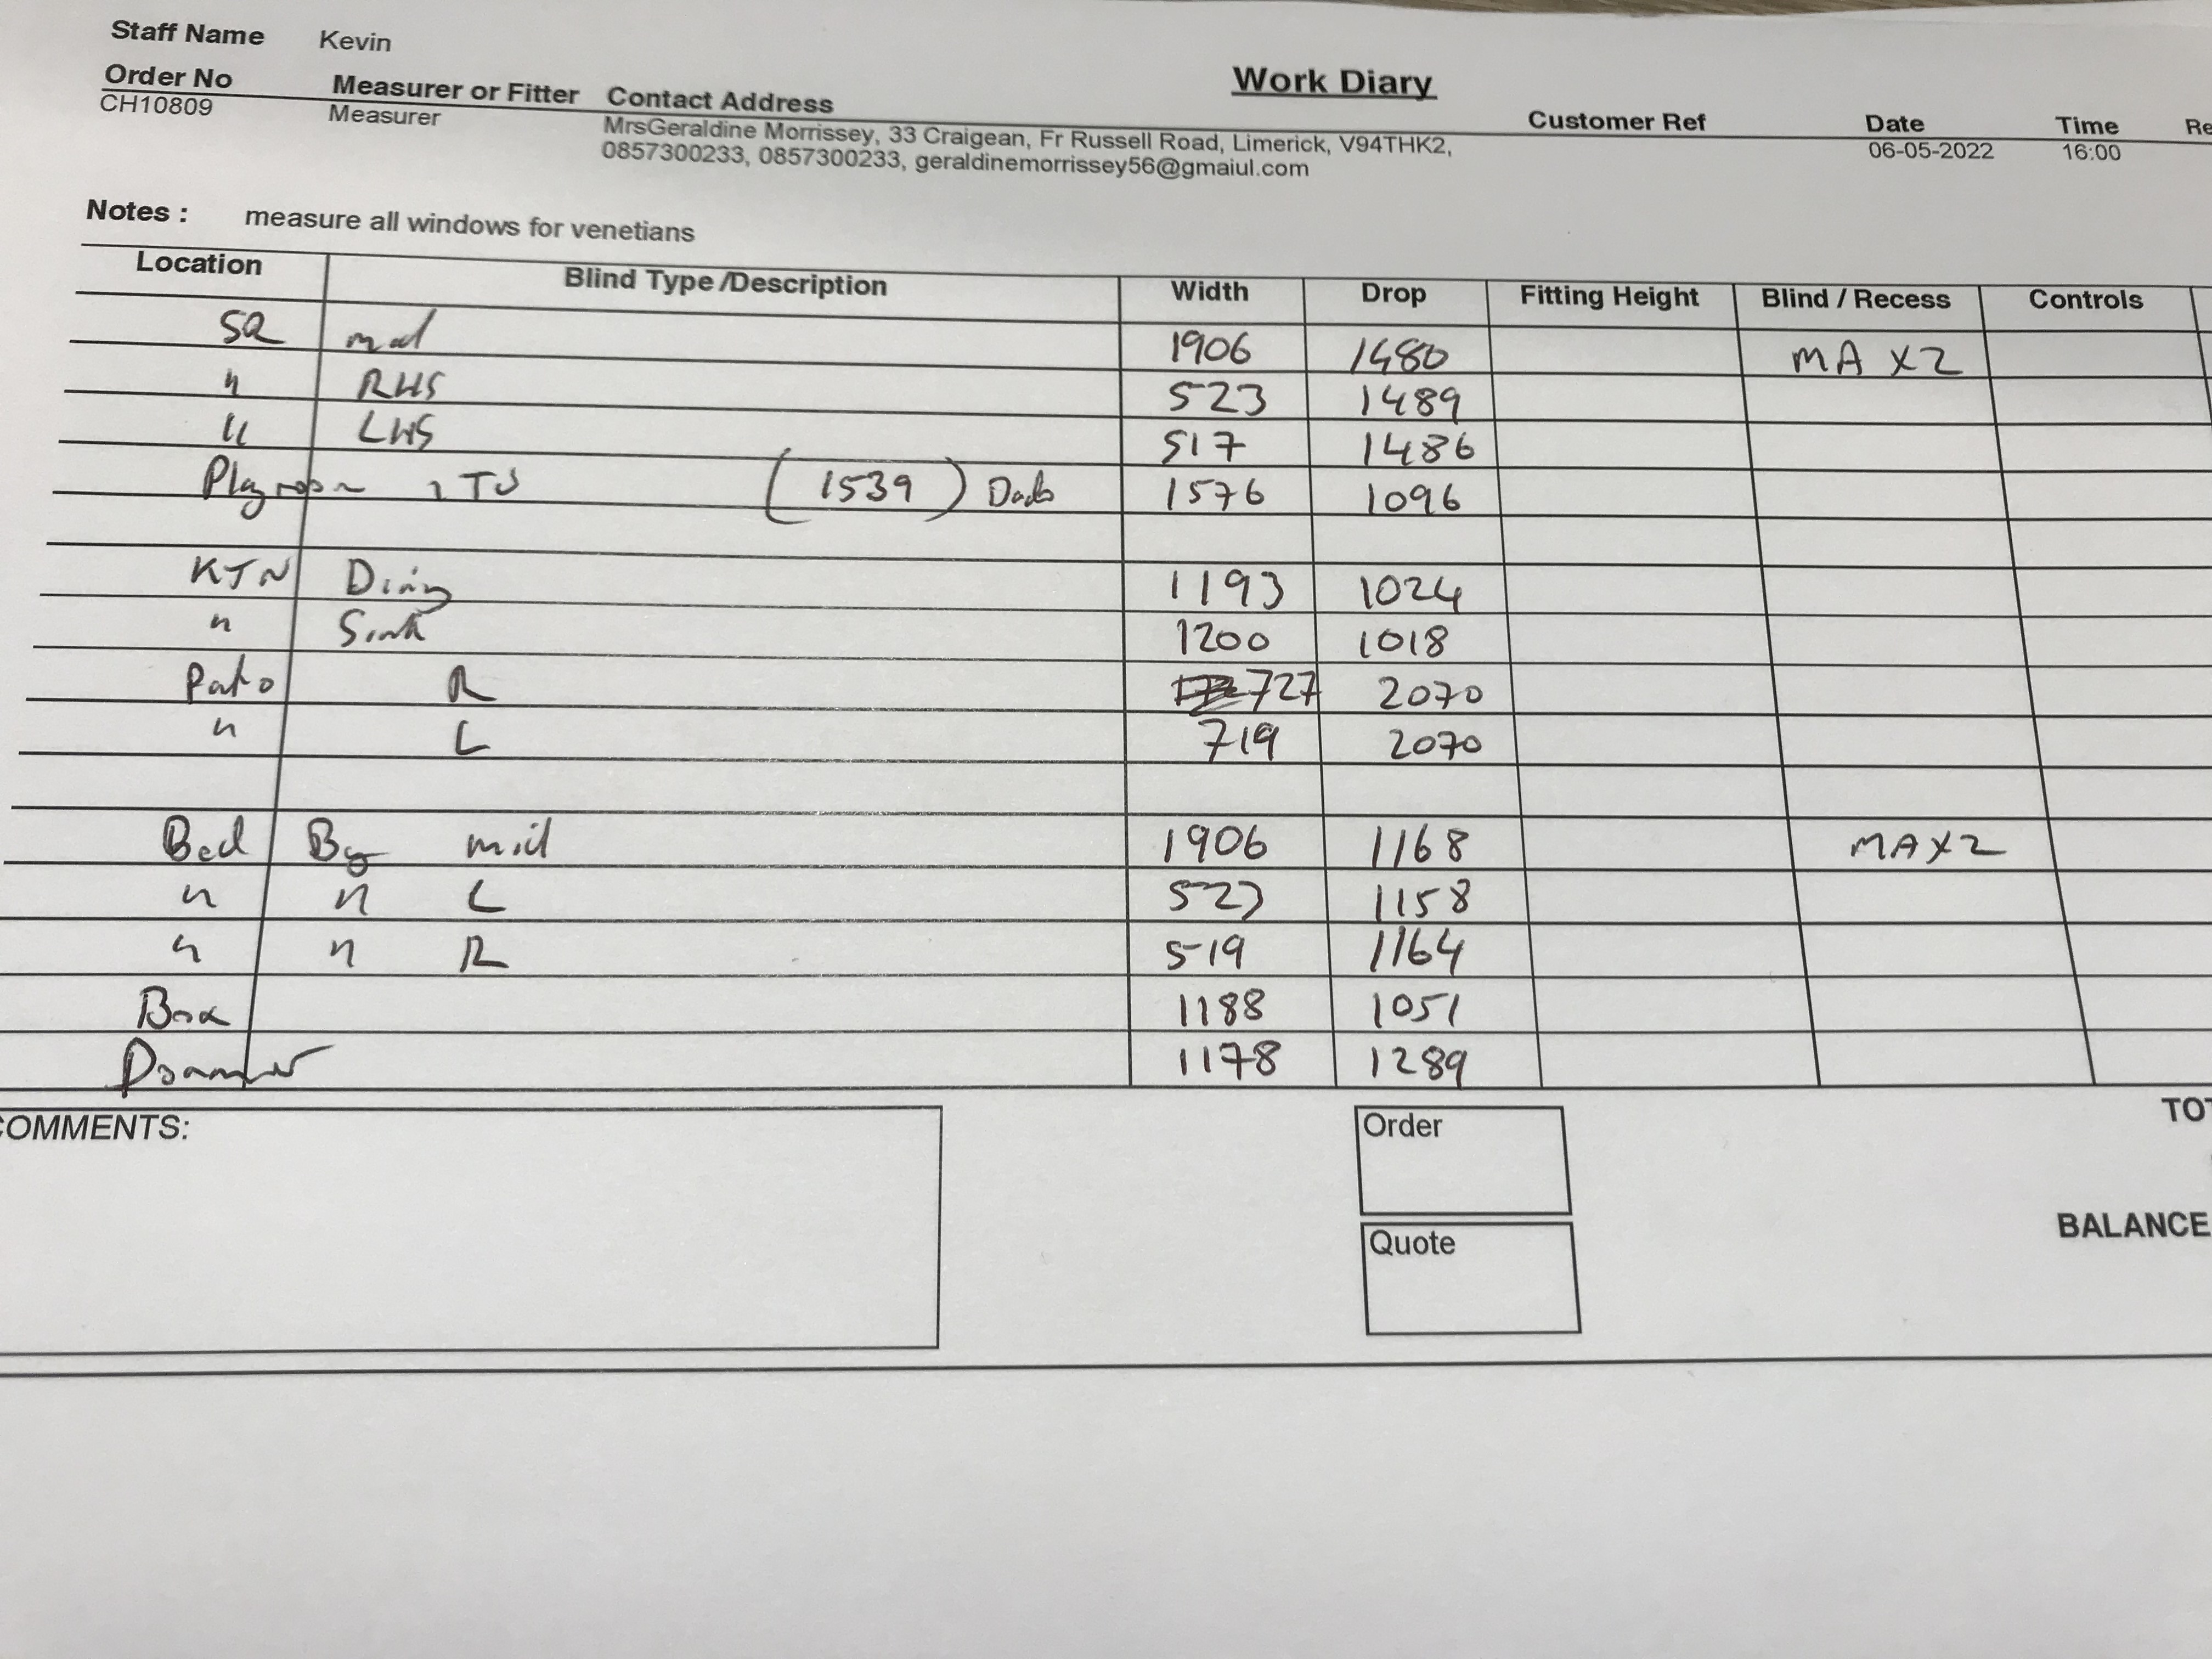 Staff Name Kevin
Work Diary
Order No Measurer or Fitter Contact Address Customer Ref Date Time Re
CH10809 Measurer MrsGeraldine Morrissey, 33 Craigean, Fr Russell Road, Limerick, V94THK2, 06-05-2022 16:00
0857300233, 0857300233, geraldinemorrissey56@gmaiul.com
Notes : measure all windows for venetians
Location Blind Type /Description Width Drop Fitting Height Blind / Recess Controls
1906 1480 MA X2
" RHS 523 1489
" LHS 517 1486
Playroom (1539) 1576 1096
KTN Dining 1193 1024
" Sink 1200 1018
Patio R 727 2070
" L 719 2070
Bed Bay mid 1906 1168 MAX2
" " L 523 1158
" " R 519 1164
Box 1188 1051
1178 1289
COMMENTS:
Order
Quote
TOT
BALANCE